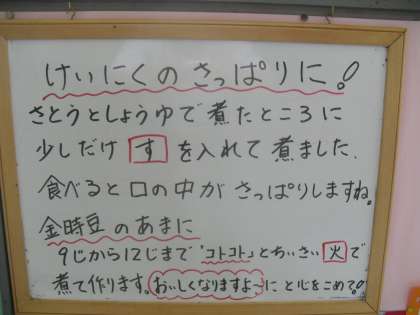 けいにくのさっぱりに!
さとうとしょうゆで煮たところに
少しだけ す を入れて煮ました.
食べると口の中がさっぱりしますね。
金時豆のあまに
9じから12じまで「コトコト」とちいさい 火 で
煮て作ります。おいしくなりますよ〜にと心をこめて!